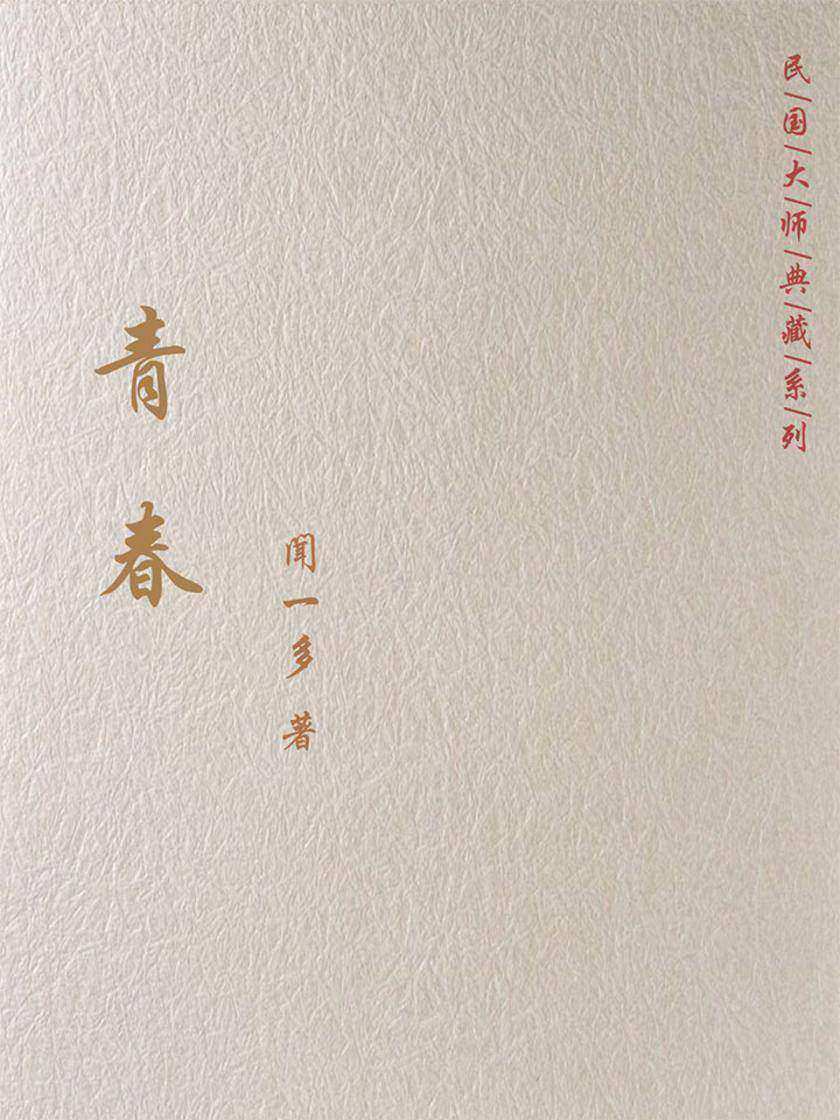 民/国/大/师/典/藏/系/列
青春
闻一多 著